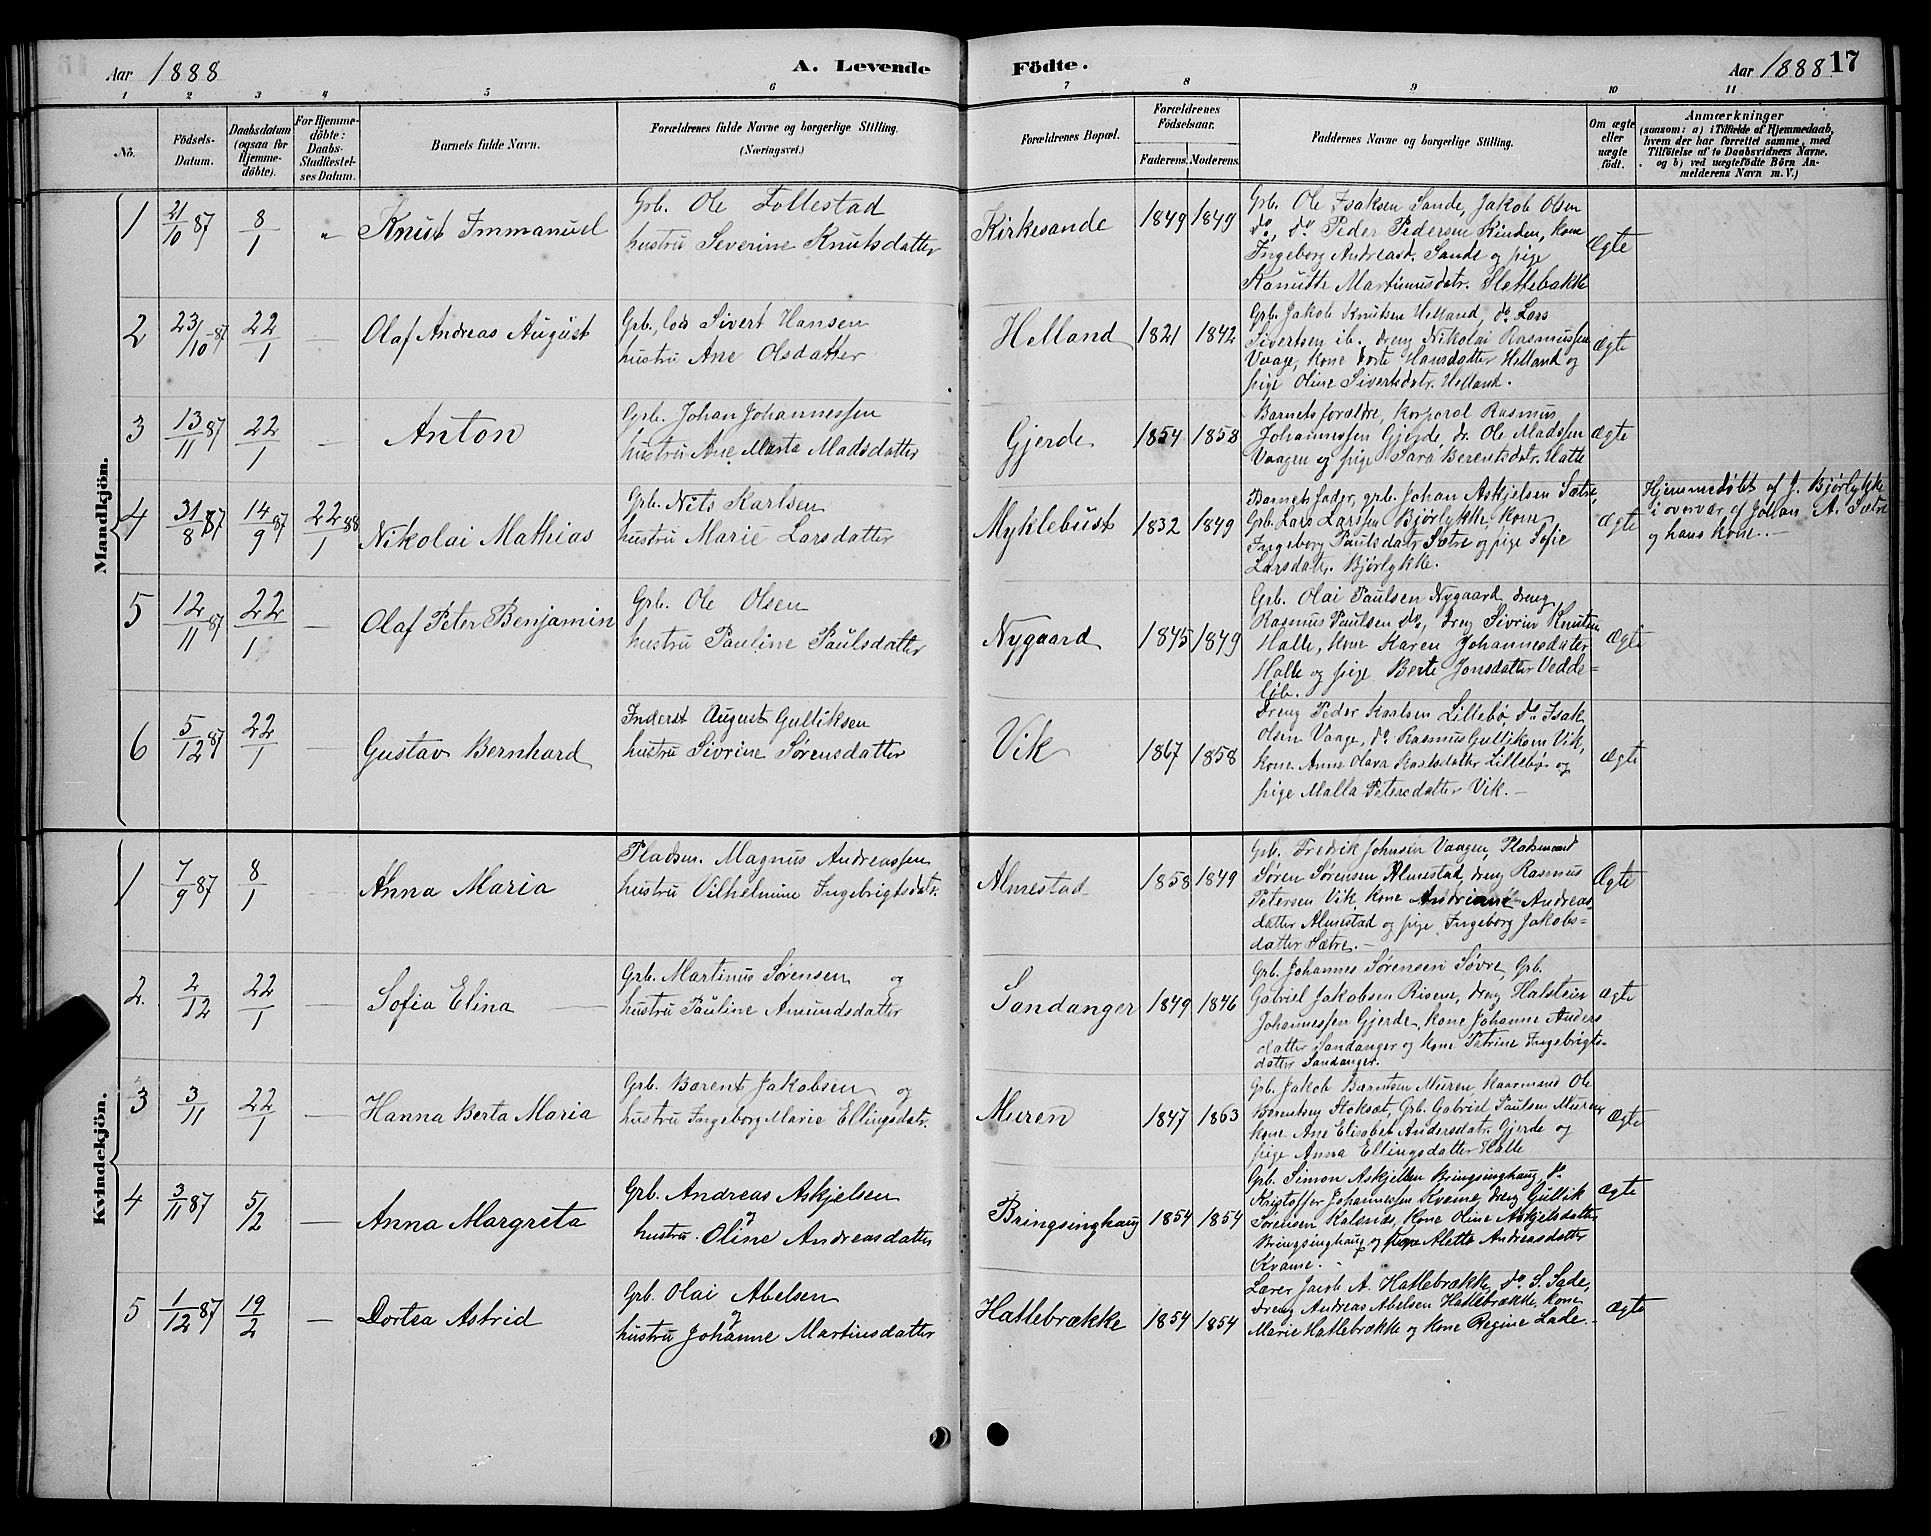 Aar 1888 A. Levende Födte. Aar 1888 17
1 2 3 4 5 6 7 8 9 10 11
No. Födsels-Datum. Daabsdatum (ogsaa för Hjemme-döbte). For Hjemme-döbte: Daabs-Stadfæstel-ses Datum. Barnets fulde Navn. Forældrenes fulde Navne og borgerlige Stilling. (Næringsvei.) Forældrenes Bopæl. Forældrenes Födselsaar. Faderens. Moderens. Faddernes Navne og borgerlige Stilling. Om ægte eller uægte födt. Anmærkninger
(saasom: a) i Tilfælde af Hjemmedaab, hvem der har forrettet samme, med Tilföielse af to Daabsvidners Navne, og b) ved uægtefödte Börn Anmelderens Navn m. V.)
Mandkjön.
1 21/10 87 8/1 „ Knut Immanuel
Grb. Ole Follestad
hustru Severine Knutsdatter
Kirkesande 1849 1849
Grb. Ole Isaksen Sande, Jakob Olsen
do, do Peder Pedersen Kinden, kone
Ingeborg Andreasd. Sande og pige
Kanutte Martinusdatr. Slettebakke
Ægte
2 23/10 87 22/1 — Olaf Andreas August
Grb. los Sivert Hansen
hustru Ane Olsdatter
Helland 1821 1842
Grb. Jakob Knutsen Helland, do Lars
Sivertsen ib. dreng Nikolai Rasmussen
Vaage, kone Dorte Hansdatter Helland og
pige Oline Sivertsdatr. Helland.
Ægte
3 13/11 87 22/1 — Anton
Grb. Johan Johannessen
hustru Ane Marta Madsdatter
Gjerde 1854 1858
Barnets forældre, Korporal Rasmus
Johannessen Gjerde, dr. Ole Madssen
Vaagen og pige Sara Berentsdatr. Hatle
Ægte
4 31/8 87 14/9 87 22/1 88 Nikolai Mathias
Grb. Nils Karlsen
hustru Marie Larsdatter
Myklebust 1832 1849
Barnets fader, grb. Johan Askjelsen Sætre,
Grb. Lars Larssen Bjørlykke, kone
Ingeborg Paulsdatr Sætre og pige Sofie
Larsdatr. Bjørlykke.
Ægte
Hjemmedøbt af J. Bjørlykke
i overvær af Johan A. Sætre
og hans kone. —
5 12/11 87 22/1 — Olaf Peter Benjamin
Grb. Ole Olsen
hustru Pauline Paulsdatter
Nygaard 1845 1849
Grb. Olai Paulsen Nygaard, dreng
Rasmus Paulsen do, dreng Sivrin Knutsen
Halle, kone Karen Johannesdatter
Halle og pige Berte Jonsdatter Vedde=
løb.
Ægte
6 5/12 87 22/1 — Gustav Bernhard
Inderst August Gulliksen
hustru Sivrine Sørensdatter
Vik 1867 1858
Dreng Peder Karlsen Lillebø, do Isak
Olsen Vaage, do Rasmus Gulliksen Vik,
kone Anne Olava Karlsdatter Lillebø og
pige Malla Petersdatter Vik. —
Ægte
Kvindekjön.
1 7/9 87 8/1 — Anna Maria
Pladsm. Magnus Andreassen
hustru Vilhelmine Ingebrigtsdatr.
Almestad 1858 1849
Grb. Fredrik Johnsen Vaagen, Pladsmand
Søren Sørensen Almestad, dreng Rasmus
Petersen Vik, kone Andriane Andreas
datter Almestad og pige Ingeborg Jakobs=
datter Sætre. —
Ægte
2 2/12 22/1 — Sofia Elina
Grb. Martinus Sørensen og
hustru Pauline Amundsdatter
Sandanger 1849 1846
Grb. Johannes Sørensen Søvre, Grb.
Gabriel Jakobsen Risene, dreng Halstein
Johannessen Gjerde, kone Johanne Anders
datter Sandanger og kone Petrine Ingebrigts=
datter Sandanger.
Ægte
3 3/11 22/1 — Hanna Berta Maria
Grb. Berent Jakobsen og
hustru Ingeborg Marie Ellingsdatr.
Muren 1847 1863
Grb. Jakob Berntsen Muren, kaarmand Ole
Berntsen Stoksæt, Grb. Gabriel Paulsen Muren,
kone Ane Elisabet Andersdatr. Gjerde og
pige Anna Ellingsdatter Hatle
Ægte
4 3/11 87 5/2 — Anna Margreta
Grb. Andreas Askjelsen
og
hustru Oline Andreasdatter
Bringsinghaug 1854 1854
Grb. Simon Askjelsen Bringsinghaug, do
Kristoffer Johannessen Kvame, dreng Gullik
Sørensen Kalsnæs, kone Oline Askjelsdatter
Bringsinghaug og pige Aletta Andreasdatter
Kvame. —
Ægte
5 1/12 87 19/2 — Dortea Astrid
Grb. Olai Abelsen
og
hustru Johanne Martinsdatter
Hatlebrække 1854 1854
Lærer Jacob A. Hatlebrække, do S. Sade,
dreng Andreas Abelsen Hatlebrække, kone
Marie Hatlebrække og kone Regine Lade. —
Ægte